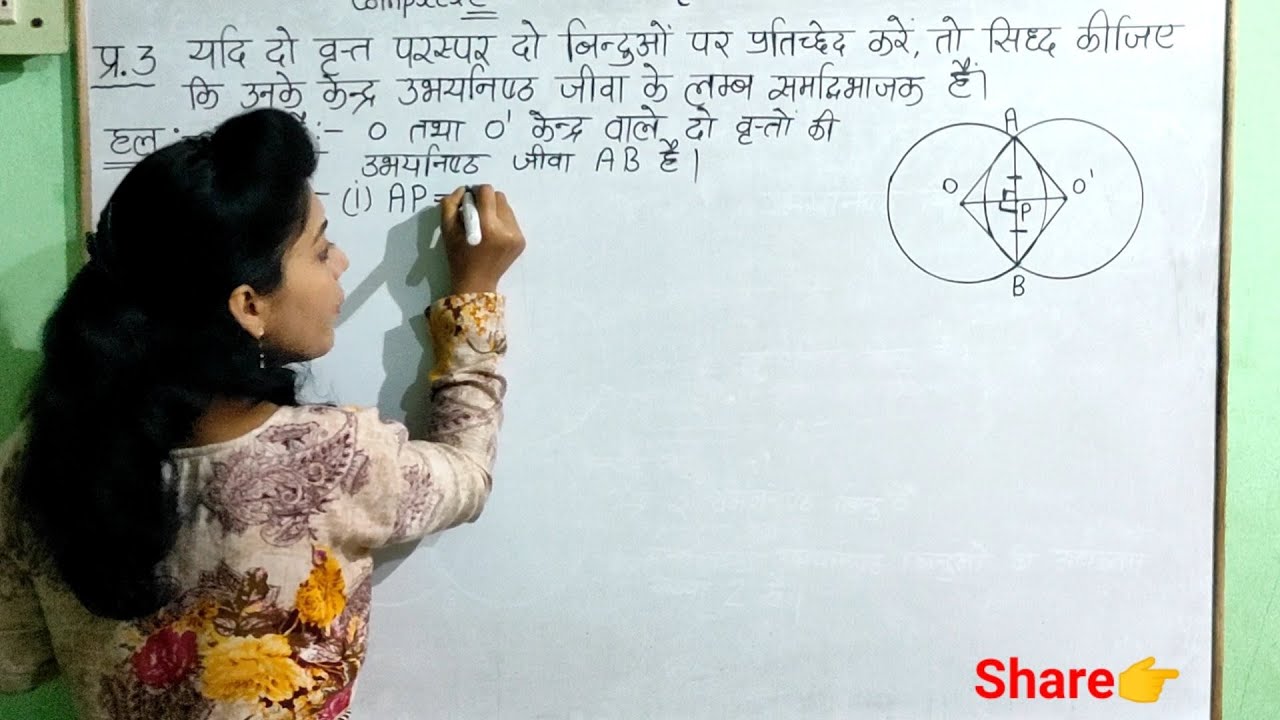 प्र.3 यदि दो वृत्त परस्पर दो बिन्दुओं पर प्रतिच्छेद करें, तो सिध्द कीजिए
कि उनके केन्द्र उभयनिष्ठ जीवा के लम्ब समद्विभाजक हैं।
हल :- O तथा O' केन्द्र वाले दो वृत्तों की
उभयनिष्ठ जीवा AB है।
(i) AP =
A
O O'
P
B
Share